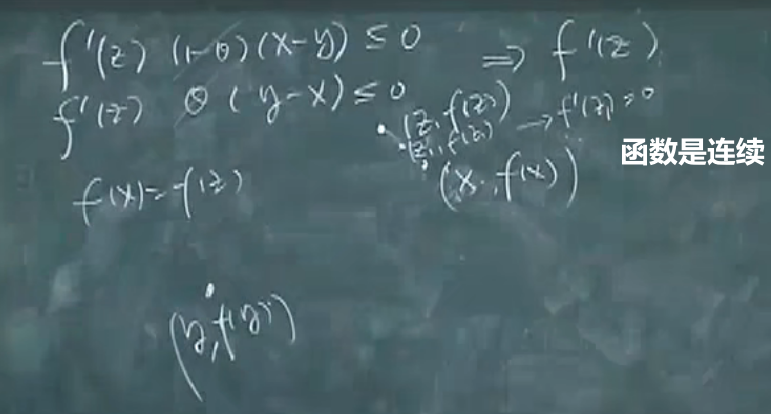 f'(z) (1-θ)(x-y) ≤ 0 ⇒ f'(z)
f'(z) θ (y-x) ≤ 0
(z, f(z))
(z₁, f(z₁)) → f'(z₁) = 0
函数是连续
f(x) = f(z)
(x, f(x))
(y, f(y))